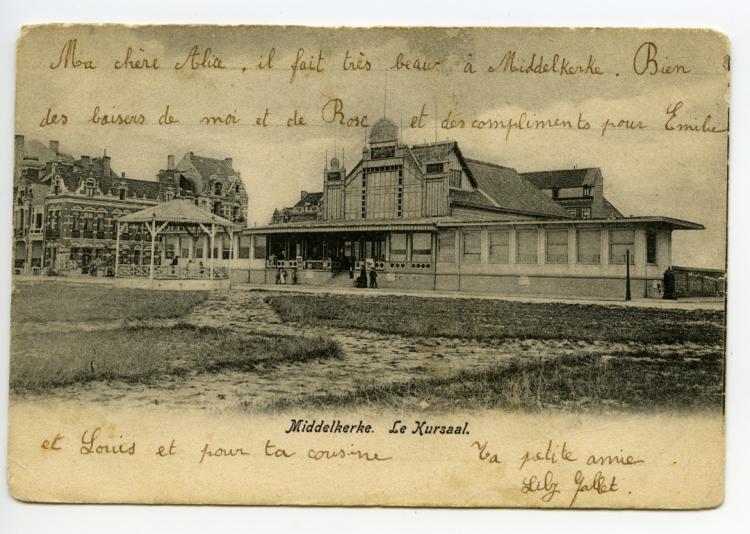 Ma chère Alia, il fait très beau à Middelkerke. Bien
des baisers de moi et de Rose et des compliments pour Emilie
Middelkerke. Le Kursaal.
et Louis et pour ta cousine
Ta petite amie
Lily Gallet.